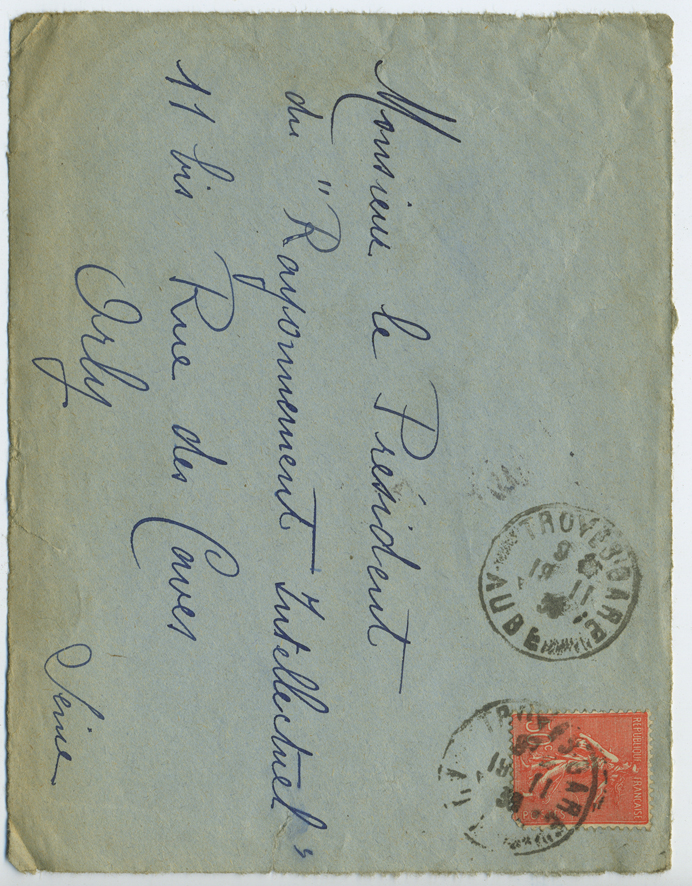 Monsieur le Président
du "Rayonnement Intellectuel"
11 bis Rue des Caves
Orly
Seine
TROYES GARE
AUBE
REPUBLIQUE FRANÇAISE
TROYES GARE